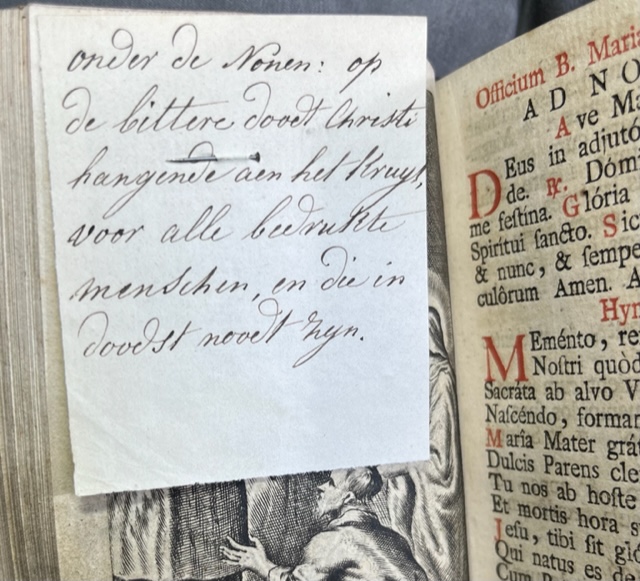 onder de Nonen: op
de bittere doodt Christi
hangende aen het Kruys,
voor alle bedrukte
menschen, en die in
doodst noodt zyn.
Officium B. Maria
AD NO
Ave Ma
DEus in adjutó
de. ℟. Dómi
me festina. Glória
Spirítui sancto. Sic
& nunc, & sempe
culôrum Amen. A
Hyn
MEménto, re
Nostri quòd
Sacráta ab alvo V
Nascéndo, forman
María Mater grát
Dulcis Parens cle
Tu nos ab hoste
Et mortis hora s
Jesu, tibi sit gló
Qui natus es de
Cum